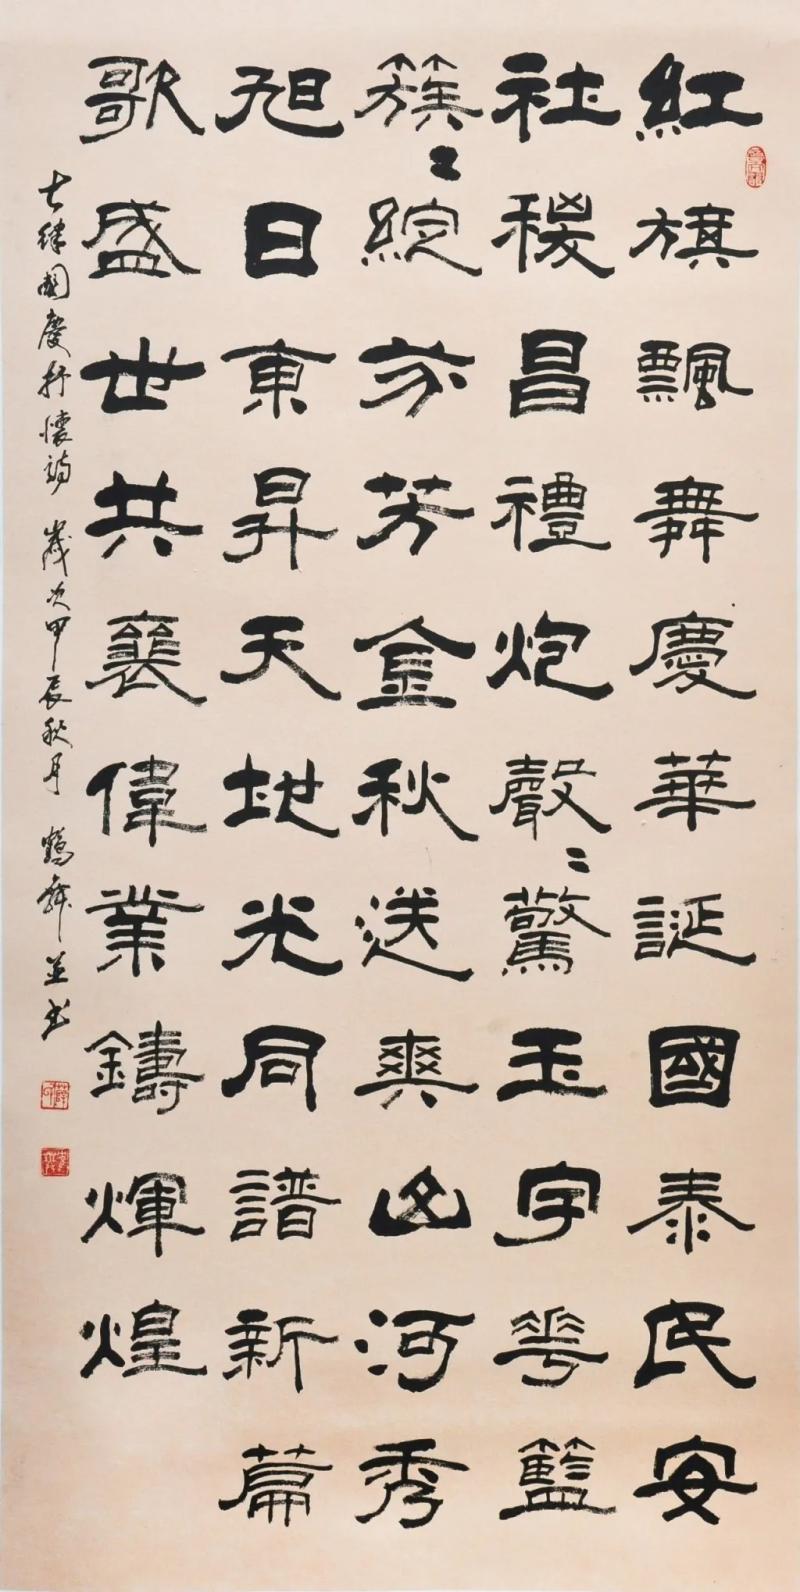 紅旗飄舞慶華誕國泰民安
社稷昌禮炮聲〻驚玉宇花籃
簇〻綻芬芳金秋送爽山河秀
旭日東昇天地光同譜新篇
歌盛世共襄偉業鑄輝煌
七律國慶抒懷詩 歲次甲辰秋月 鶴舞並书